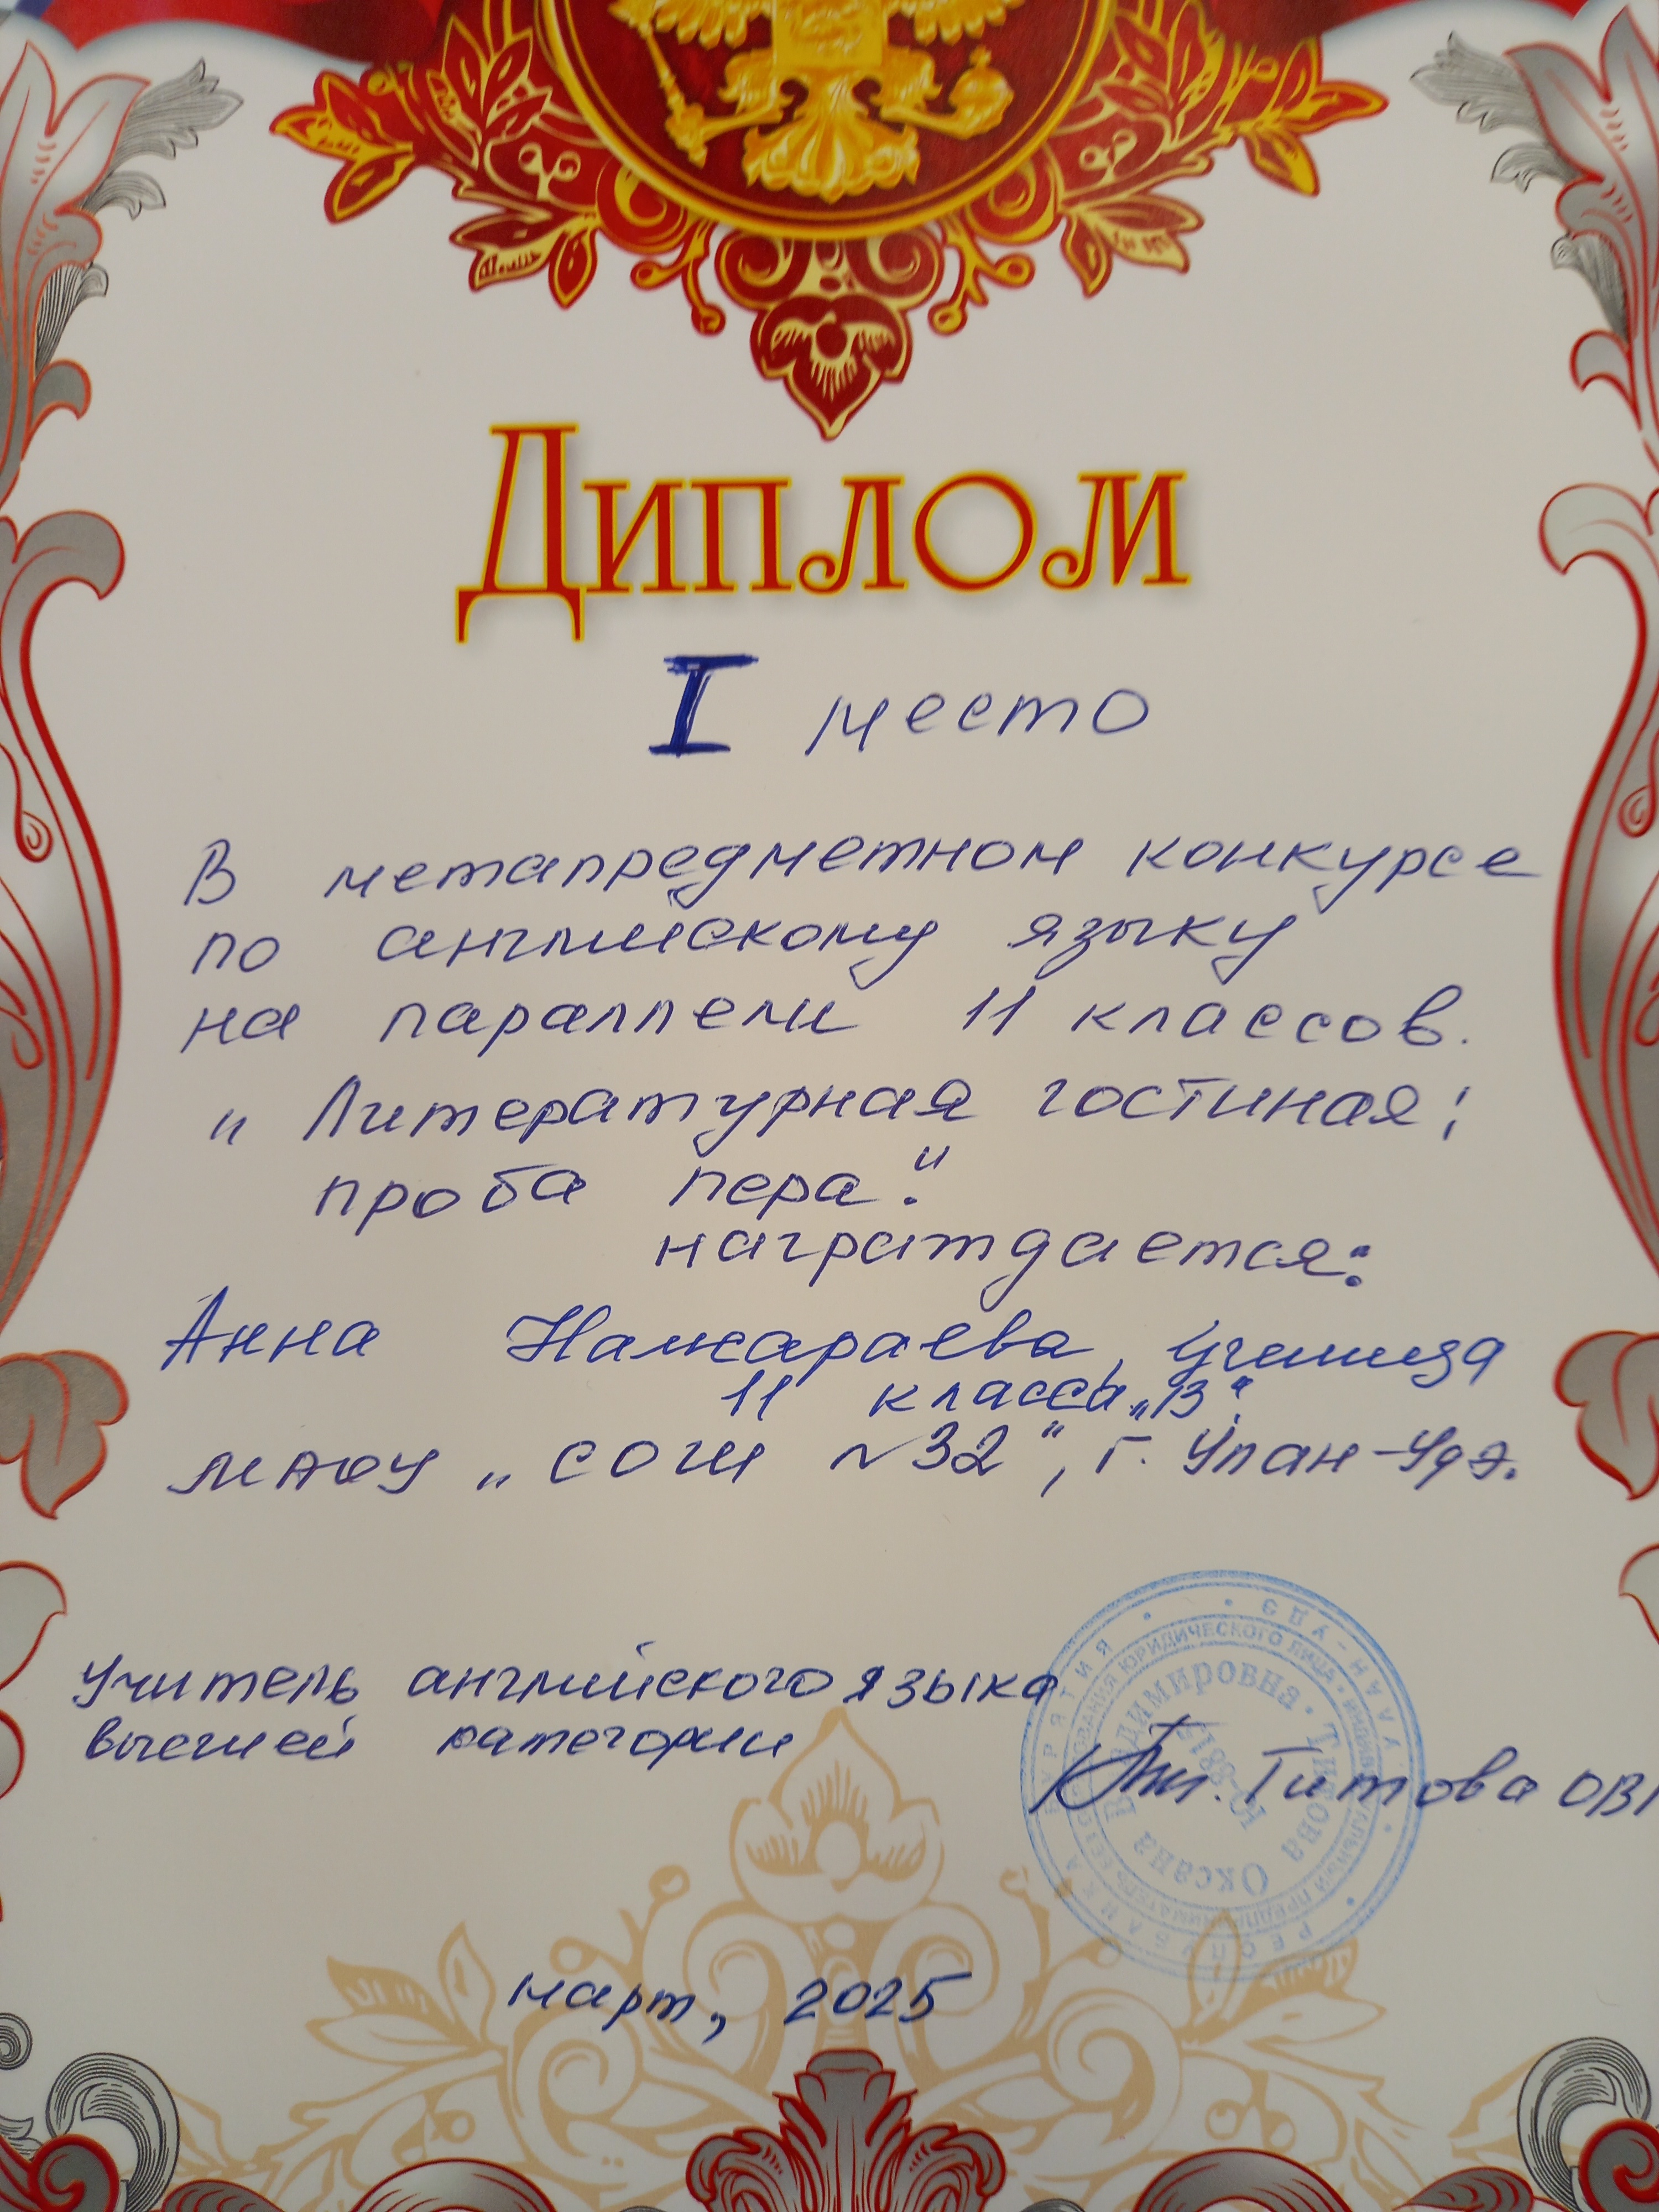 Диплом
I место
В метапредметном конкурсе
по английскому языку
на параллели 11 классов.
"Литературная гостиная;
проба пера".
награждается:
Анна Намсараева, ученица
11 класса „В"
МАОУ „СОШ №32", г. Улан-Удэ.
Учитель английского языка
высшей категории
Титова ОВ
РЕСПУБЛИКА БУРЯТИЯ • УЛАН-УДЭ
Титова Оксана Владимировна
март, 2025